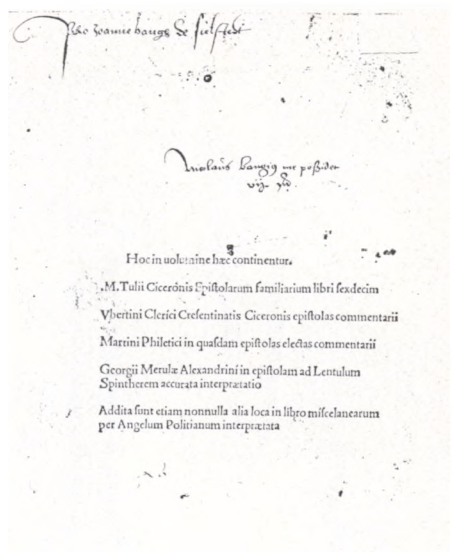 Pro Joanne baugh de sielstedt
Nicolaus Bangius me possidet
Hoc in uolumine hæc continentur.
.M. Tulii Ciceronis Epistolarum familiarium libri sexdecim
Vbertini Clerici Cresentinatis Ciceronis epistolas commentarii
Martini Philetici in quasdam epistolas electas commentarii
Georgii Merulæ Alexandrini in epistolam ad Lentulum
Spintherem accurata interprætatio
Addita sunt etiam nonnulla alia loca in libro miscelanearum
per Angelum Politianum interprætata